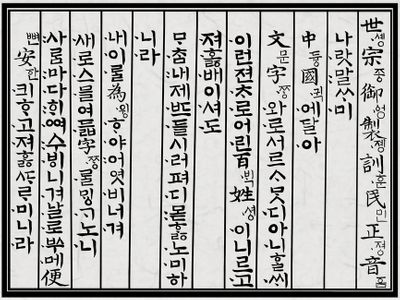 世솅宗종御엉製졩訓훈民민正졍音ᅙᅳᆷ
나랏말ᄊᆞ미
中듕國귁에달아
文문字ᄍᆞᆼ와로서르ᄉᆞᄆᆞᆺ디아니ᄒᆞᆯᄊᆡ
이런젼ᄎᆞ로어린百ᄇᆡᆨ姓셩이니르고
져ᄒᆞᇙ배이셔도
ᄆᆞᄎᆞᆷ내제ᄠᅳ들시러펴디몯ᄒᆞᇙ노미하
니라
내이ᄅᆞᆯ爲윙ᄒᆞ야어엿비너겨
새로스믈여듧字ᄍᆞᆼᄅᆞᆯᄆᆡᇰᄀᆞ노니
사ᄅᆞᆷ마다ᄒᆡᅇᅧ수ᄫᅵ니겨날로ᄡᅮ메便
뼌安한킈ᄒᆞ고져ᄒᆞᇙᄯᆞᄅᆞ미니라